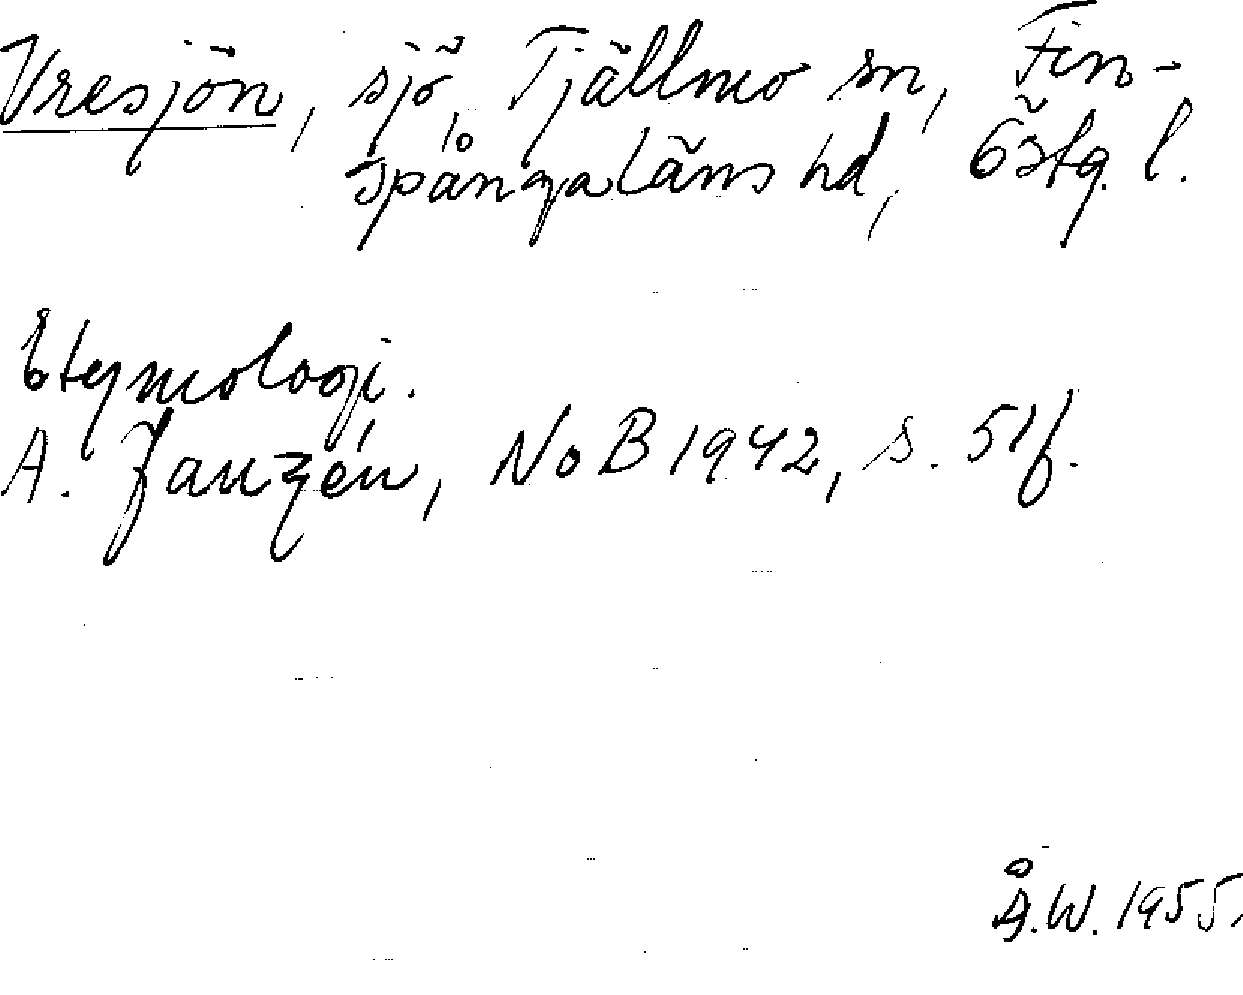 Vresjön, sjö, Tjällmo sn, Fin-
spångaläns hd, Östg. l.
Etymologi.
A. Janzén, NoB 1942, s. 51f.
Å.W. 1955.